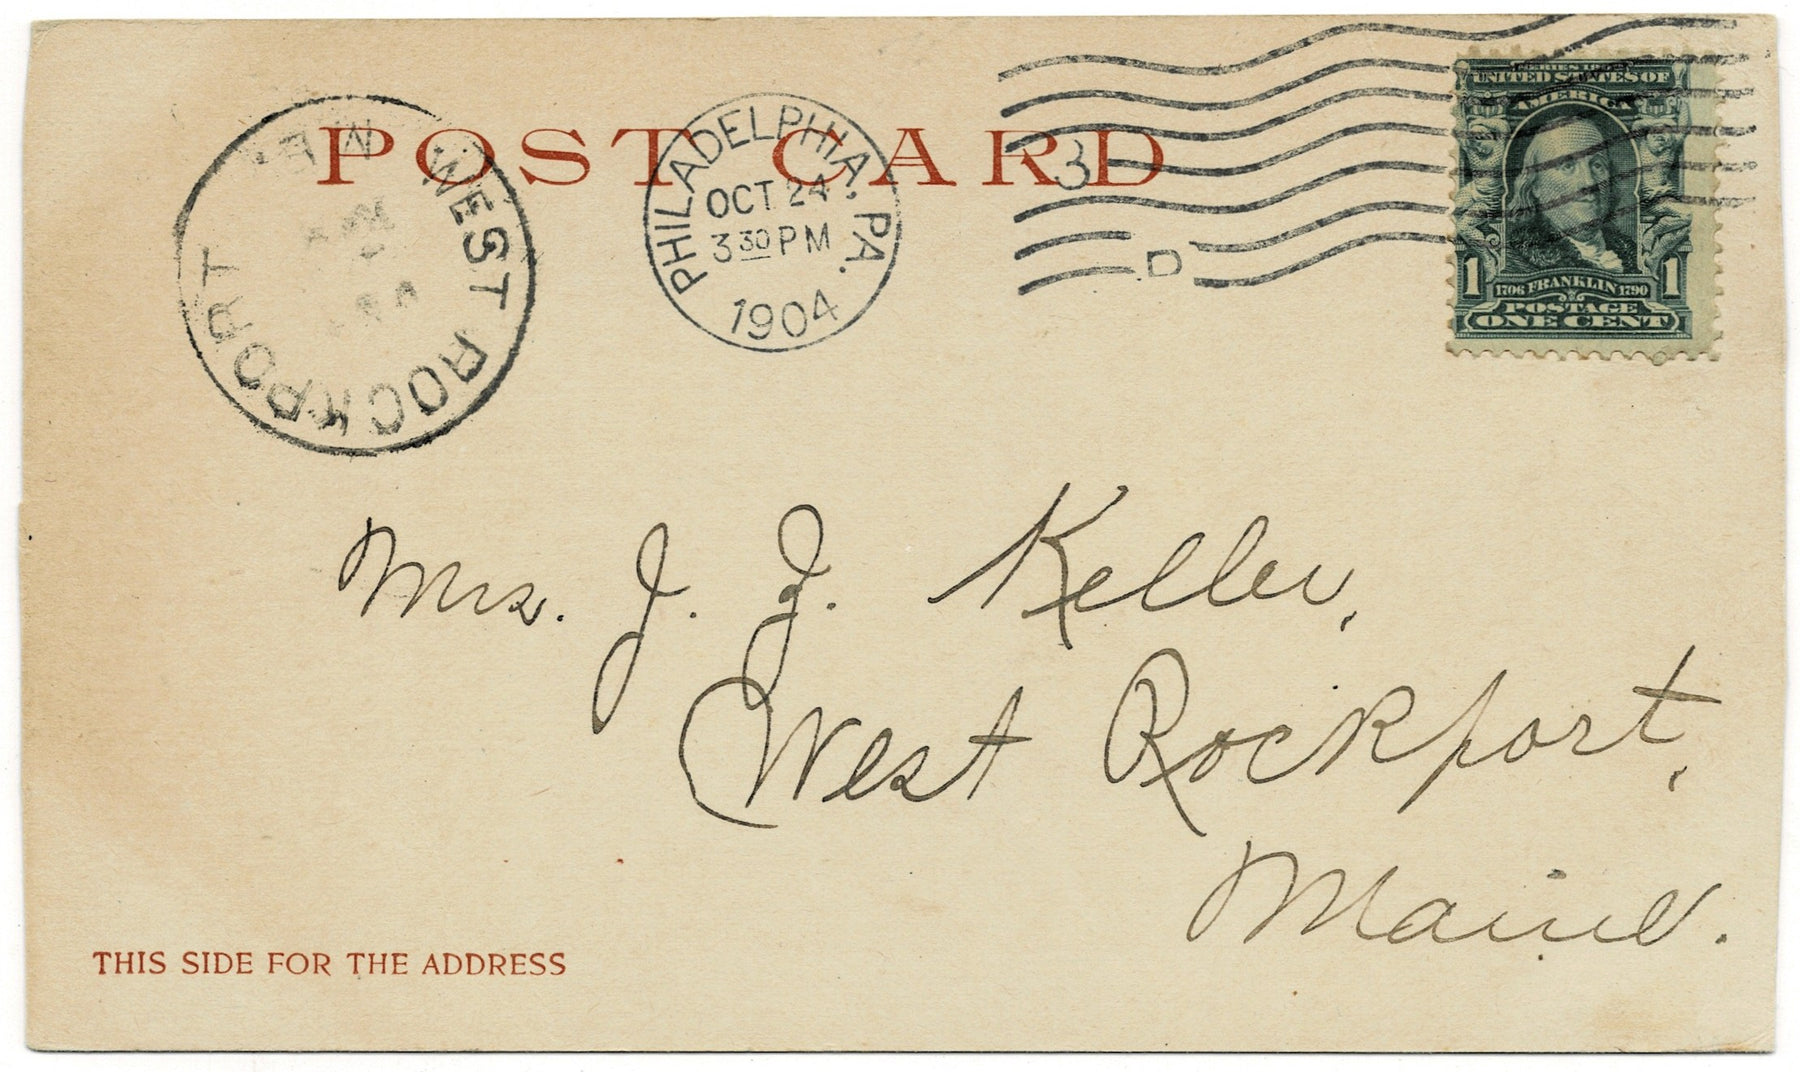 POST CARD
WEST ROCKPORT
ME.
PHILADELPHIA, PA.
OCT 24
3 30 PM
1904
3
D
UNITED STATES OF
AMERICA
1 1
1706 FRANKLIN 1790
POSTAGE
ONE CENT
Mrs. J. J. Keller,
West Rockport,
Maine.
THIS SIDE FOR THE ADDRESS